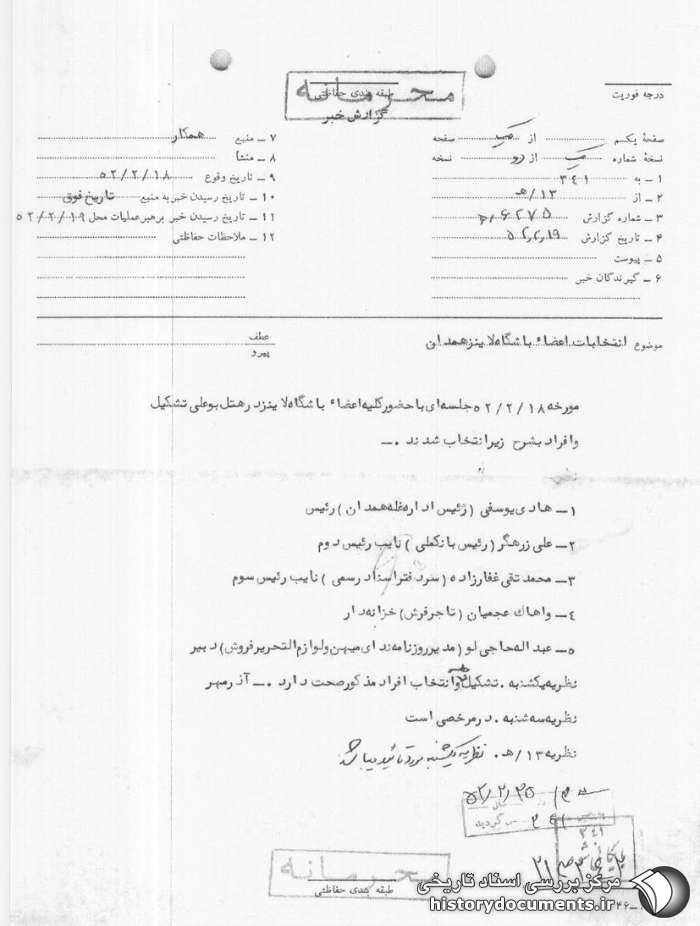 محرمانه
طبقه بندی حفاظتی
گزارش خبر
درجه فوریت
صفحهٔ یکم از یک صفحه
نسخهٔ شماره یک از دو نسخه
۱ـ به ۳۴۱
۲ـ از ۱۳/هـ
۳ـ شماره گزارش
۴ـ تاریخ گزارش ۵۲٫۲٫۱۹
۵ـ پیوست
۶ـ گیرندگان خبر
۷ـ منبع همکار
۸ـ منشأ
۹ـ تاریخ وقوع ۵۲/۲/۱۸
۱۰ـ تاریخ رسیدن خبر به منبع تاریخ فوق
۱۱ـ تاریخ رسیدن خبر برهبر عملیات محل ۵۲/۲/۱۹
۱۲ـ ملاحظات حفاظتی
موضوع انتخابات اعضاء باشگاه لاینز همدان
عطف
پیرو
مورخه ۵۲/۲/۱۸ جلسه‌ای با حضور کلیه اعضاء باشگاه لاینز در هتل بوعلی تشکیل
و افراد بشرح زیر انتخاب شدند ۰ـ
۱ـ هادی یوسفی (رئیس اداره غله همدان) رئیس
۲ـ علی زرهگر (رئیس بانک ملی) نایب رئیس دوم
۳ـ محمد تقی غفارزاده (سردفتر اسناد رسمی) نایب رئیس سوم
۴ـ واهاك عجمیان (تاجر فرش) خزانه‌دار
۵ـ عبداله حاجی لو (مدیر روزنامه ندای میهن و لوازم التحریر فروش) دبیر
نظریه یکشنبه. تشکیل جلسه و انتخاب افراد مذکور صحت دارد ۰ـ آذرمهر
نظریه سه‌شنبه. در مرخصی است
نظریه ۱۳/هـ. نظریه یکشنبه مورد تائید میباشد
۵۲/۲/۲۵
۳۴۱
محرمانه
طبقه بندی حفاظتی
مرکز بررسی اسناد تاریخی
historydocuments.ir